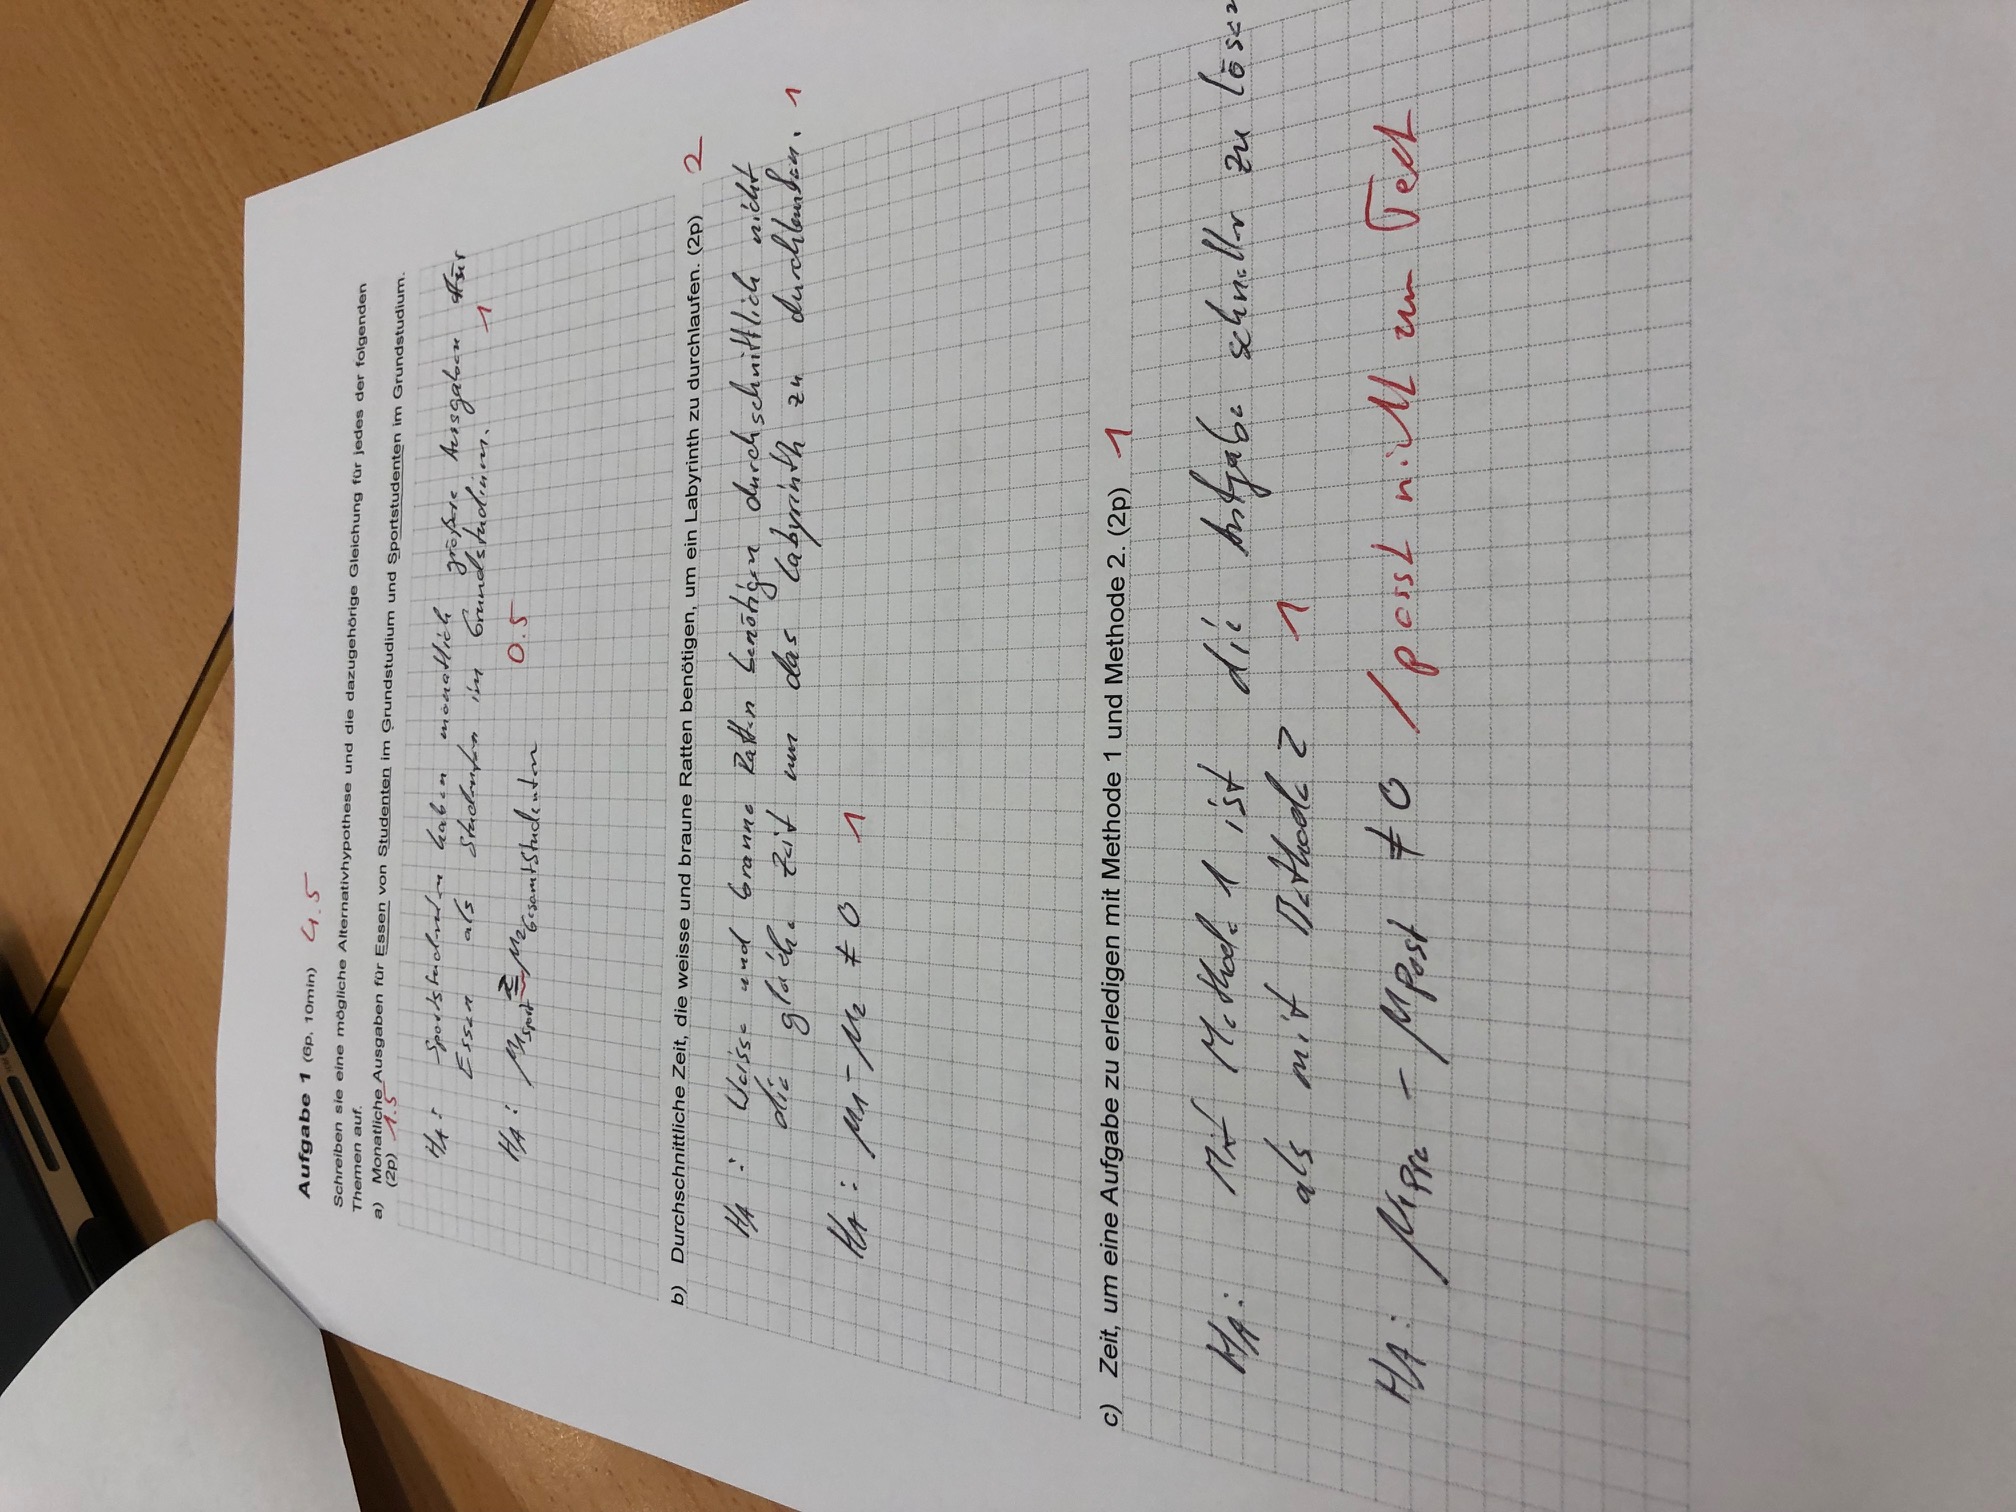 Aufgabe 1 (6p, 10min) 4.5
Schreiben sie eine mögliche Alternativhypothese und die dazugehörige Gleichung für jedes der folgenden
Themen auf.
a) Monatliche Ausgaben für Essen von Studenten im Grundstudium und Sportstudenten im Grundstudium.
(2p) 1.5
HA: Sportstudenten haben monatlich größere Ausgaben für
Essen als Studenten im Grundstudium. 1
HA: μ1Sport ≥ μ2GesamtStudenten 0.5
b) Durchschnittliche Zeit, die weisse und braune Ratten benötigen, um ein Labyrinth zu durchlaufen. (2p) 2
HA: Weisse und braune Ratten benötigen durchschnittlich nicht
die gleiche Zeit um das Labyrinth zu durchlaufen. 1
HA: μ1 - μ2 ≠ 0 1
c) Zeit, um eine Aufgabe zu erledigen mit Methode 1 und Methode 2. (2p) 1
HA: Mit Methode 1 ist die Aufgabe schneller zu lösen
als mit Methode 2 1
HA: μPre - μPost ≠ 0 / passt nicht zum Text